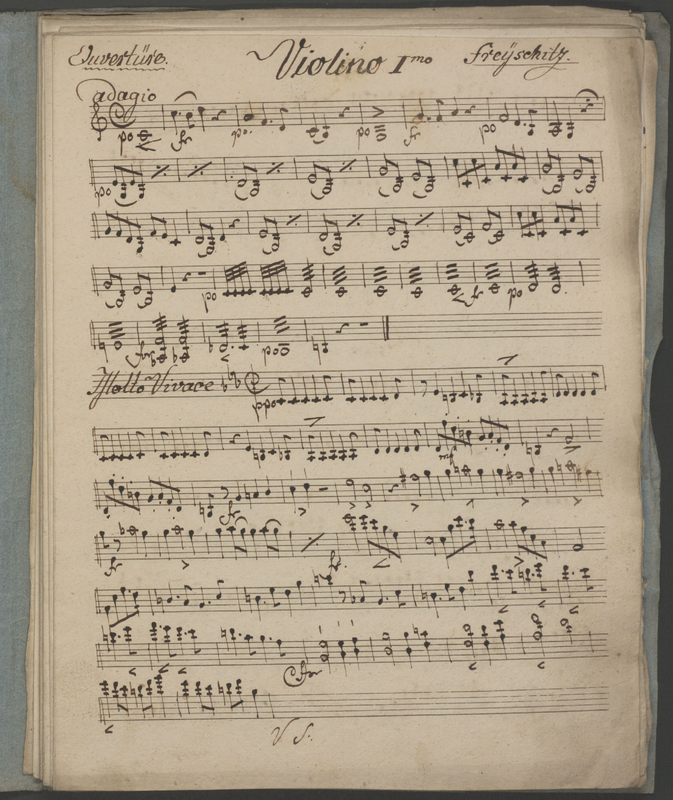 Ouvertüre. Violino Imo Freÿschitz.
adagio
po fz po. po fz po
po
po
fz po
ffo po
Molto Vivace
ppo
mf
fz
fz fz
V S.